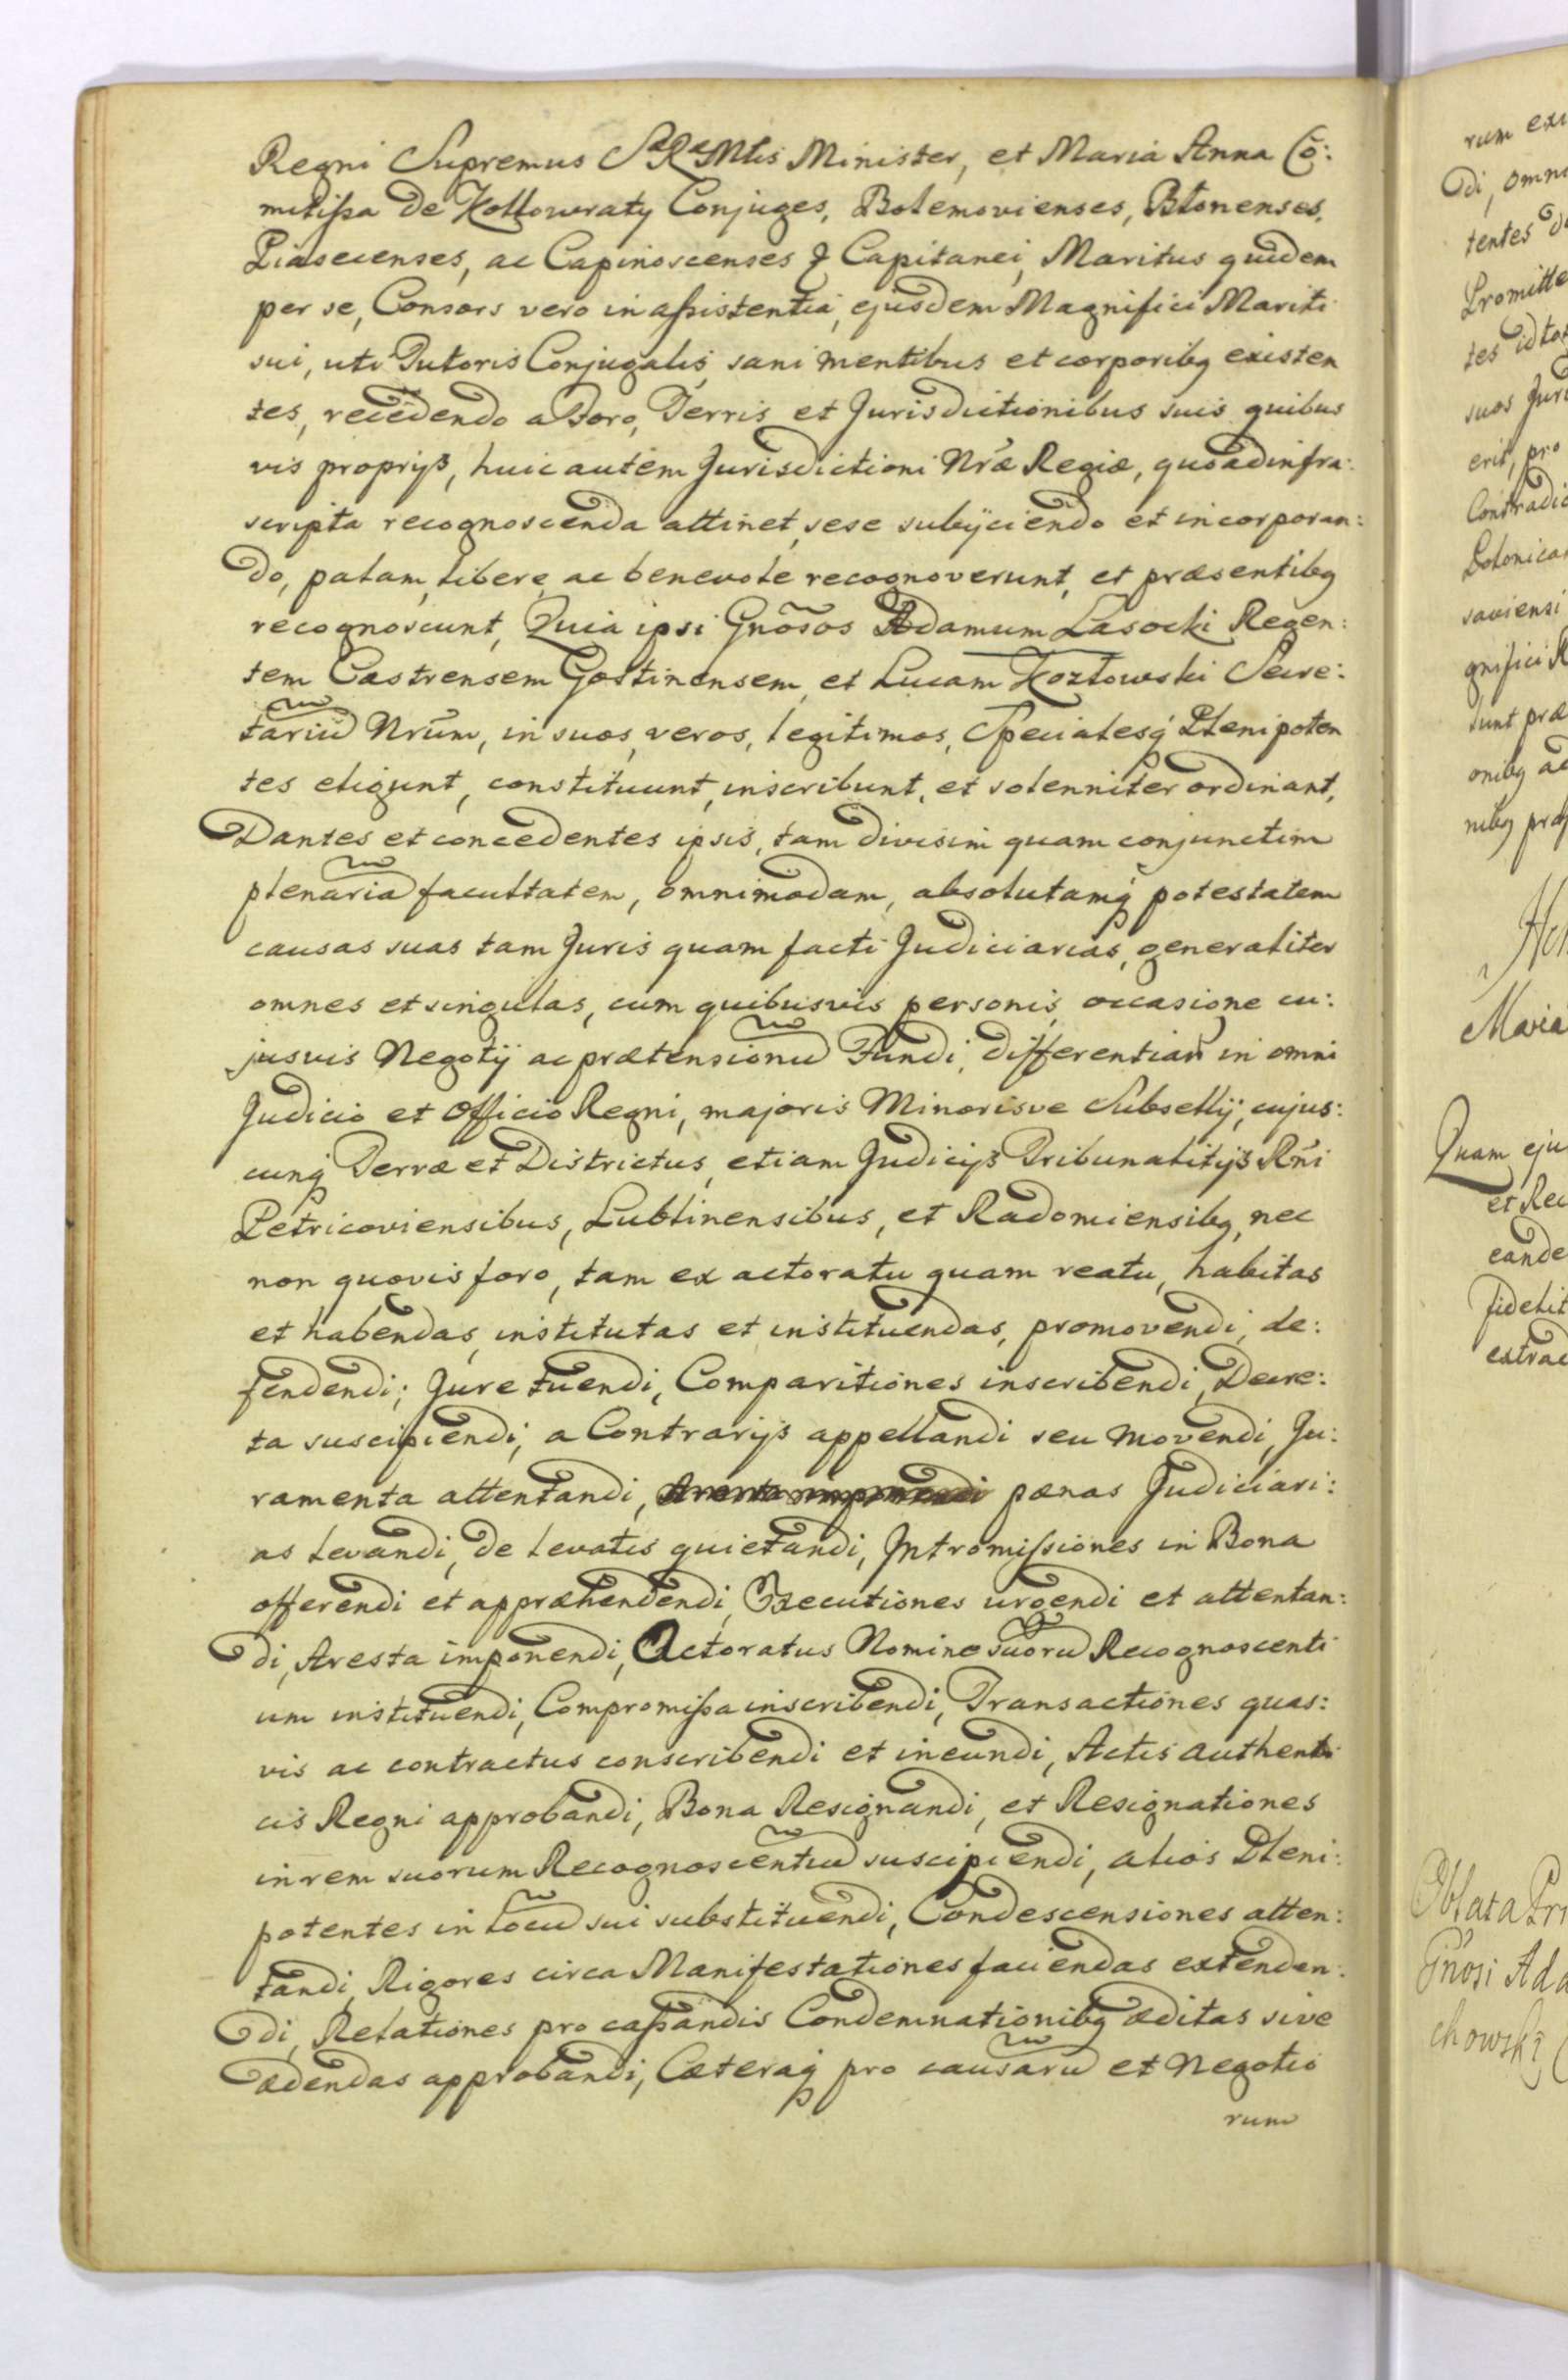 Regni Supremus SæRæMtis Minister, et Maria Anna Cõ:
mitissa de Kollowraty Conjuges, Bolemovienses, Błonenses,
Piasecenses, ac Capinoscenses & Capitanei, Maritus quidem
per se, Consors vero in assistentia, ejusdem Magnifici Mariti
sui, uti Tutoris Conjugalis, sani mentibus et corporibq existen
tes, recedendo a Foro, Terris et Jurisdictionibus suis quibus
vis proprijs, huic autem Jurisdictioni Nrae Regiæ, quoad infra:
scripta recognoscenda attinet, sese subijciendo et incorporan:
do, palam, libere, ac benevole recognoverunt, et præsentibq
recognoscunt, Quia ipsi Gnõsos Adamum Lasocki Regen:
tem Castrensem Gostinensem, et Lucam Kozłowski Secre:
tariũ Nrũm, in suos, veros, legitimos, Specialesq Plenipoten
tes eligunt, constituunt, inscribunt, et solenniter ordinant,
Dantes et concedentes ipsis, tam divisim quam conjunctim
plenariã facultatem, omnimodam, absolutamq potestatem
causas suas tam Juris quam facti Judiciarias, generaliter
omnes et singulas, cum quibusvis personis, occasione cu:
jusvis Negotij ac prætensionũ Fundi, differentian in omni
Judicio et Officio Regni, majoris Minorisve Subsellij, cujus:
cunq Terræ et Districtus, etiam Judicijs Tribunalitijs Rni
Petricoviensibus, Lublinensibus, et Radomiensibq, nec
non quovis foro, tam ex actoratu quam reatu, habitas
et habendas, institutas et instituendas, promovendi, de:
fendendi; Jure tuendi, Comparitiones inscribendi, Decre:
ta suscipiendi, a Contrarijs appellandi seu movendi, Ju:
ramenta attentandi, pænas Judiciari:
as levandi, de levatis quietandi, Intromissiones in Bona
offerendi et appræhendendi, Executiones urgendi et attentan:
di, Aresta imponendi, Actoratus Nomine suorũ Recognoscenti
um instituendi, Compromissa inscribendi, Transactiones quas:
vis ac contractus conscribendi et ineundi, Actis authenti
cis Regni approbandi, Bona Resignandi, et Resignationes
in rem suorum Recognoscentiũ suscipiendi, alios Pleni:
potentes in Locũ sui substituendi, Condescensiones atten:
tandi, Rigores circa Manifestationes faciendas extenden:
di, Relationes pro cassandis Condemnationibq æditas sive
ædendas approbandi, Cæteraq pro causarũ et Negotio
rum